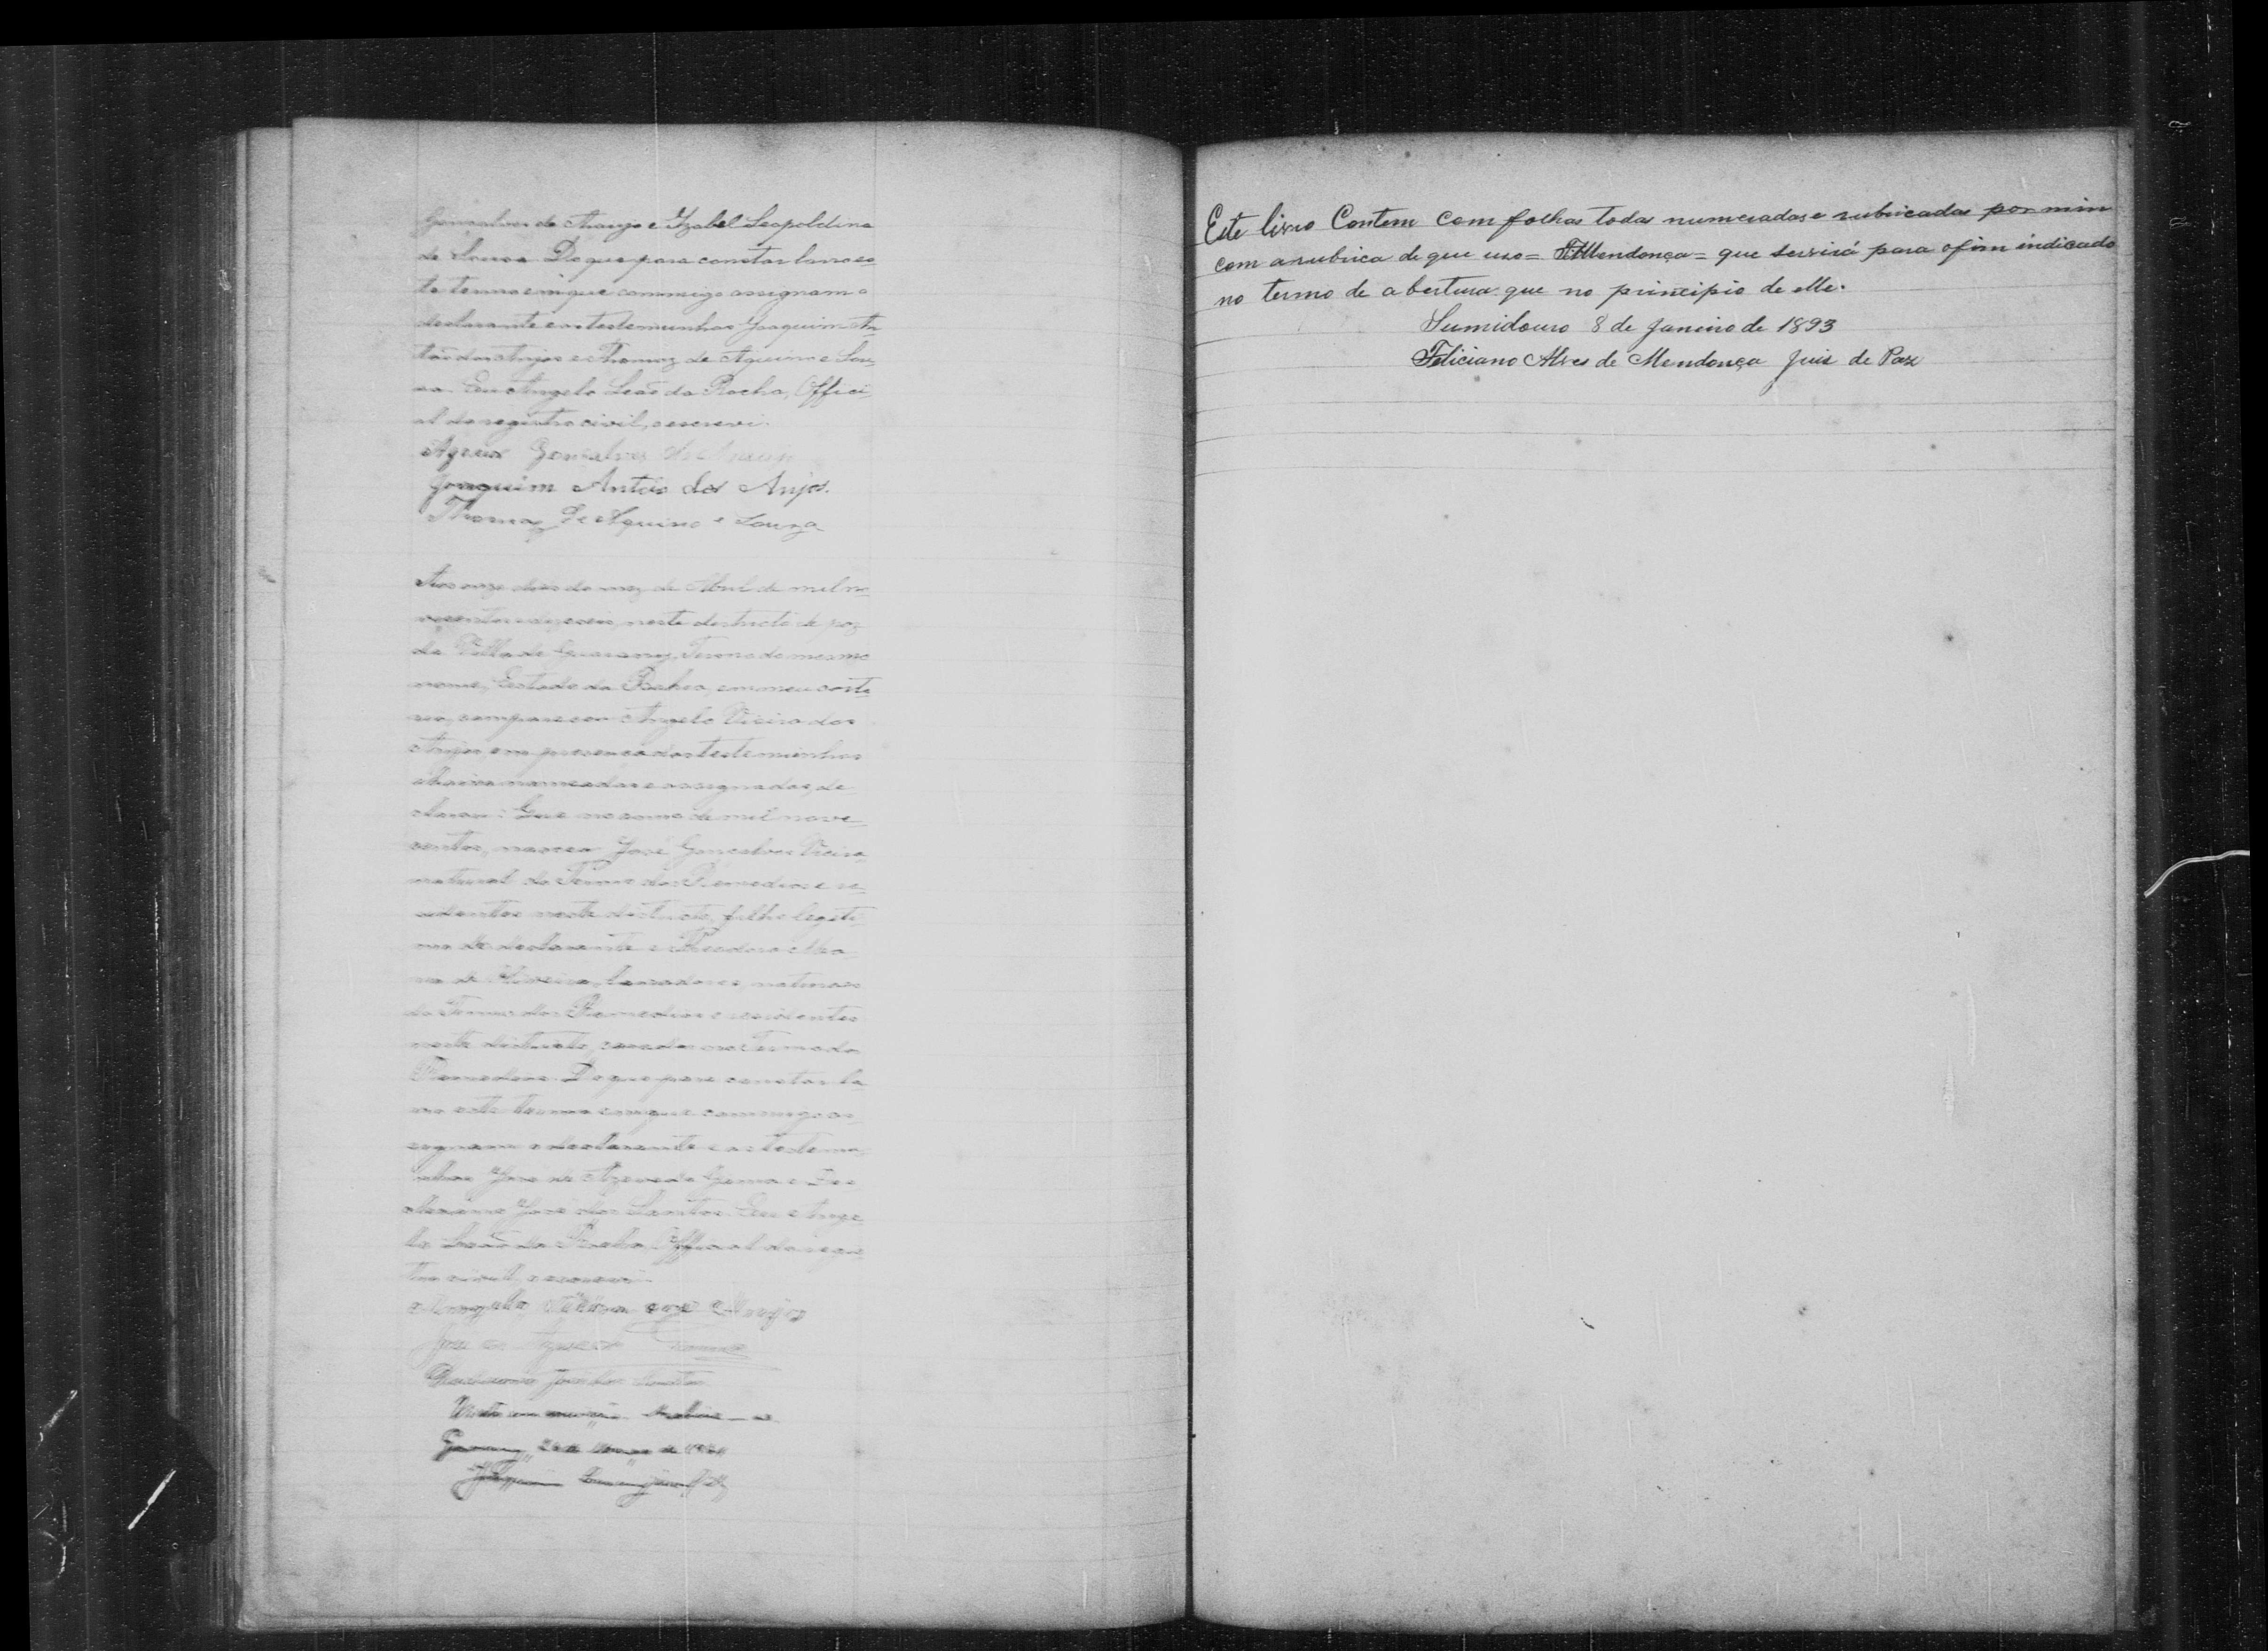 Gonçalves de Araujo e Izabel Leopoldina
de Sousa. De que para constar lavro es-
te termo em que commigo assignam o
declarante e as testemunhas Joaquim An-
tão dos Anjos e Thomaz de Aquino e Sou-
sa. Eu Angelo Leão da Rocha, Offici-
al do registro civil, o escrevi.
Gonçalves de Araujo
Joaquim Antão dos Anjos.
Thomaz de Aquino e Souza
Aos onze dias do mez de Abril de mil no-
vecentos e dezeseis, neste districto de paz
da Villa de Guarany, Termo do mesmo
nome, Estado da Bahia, em meu carto-
rio, compareceu Angelo Vieira dos
Anjos, em presença das testemunhas
abaixo nomeadas e assignadas, de-
clarou: Que no anno de mil nove-
centos, nasceu José Gonçalves Vieira,
natural do Termo dos Remedios e re-
sidentes neste districto, filho legiti-
mo do declarante e Theodora Ma
de Oliveira, lavradores, naturaes
do Termo dos Remedios e residentes
neste districto, casados no Termo dos
Remedios. De que para constar la-
vro este termo em que commigo as-
signam o declarante e as testemu-
nhas José de Azevedo Gama e
José dos Santos. Eu Ange-
lo Leão da Rocha, Official do regis-
tro civil, o escrevi.
Angelo Vieira dos Anjos
José de Azevedo Gama
José dos Santos
Visto em correição
Guarany, de Março de
Este livro Contem cem folhas todas numeradas e rubricadas por mim
com a rubrica de que uso = FAMendonça = que servirá para o fim indicado
no termo de abertura que no principio de elle.
Sumidouro 8 de Janeiro de 1893
Feliciano Alves de Mendonça Juis de Paz